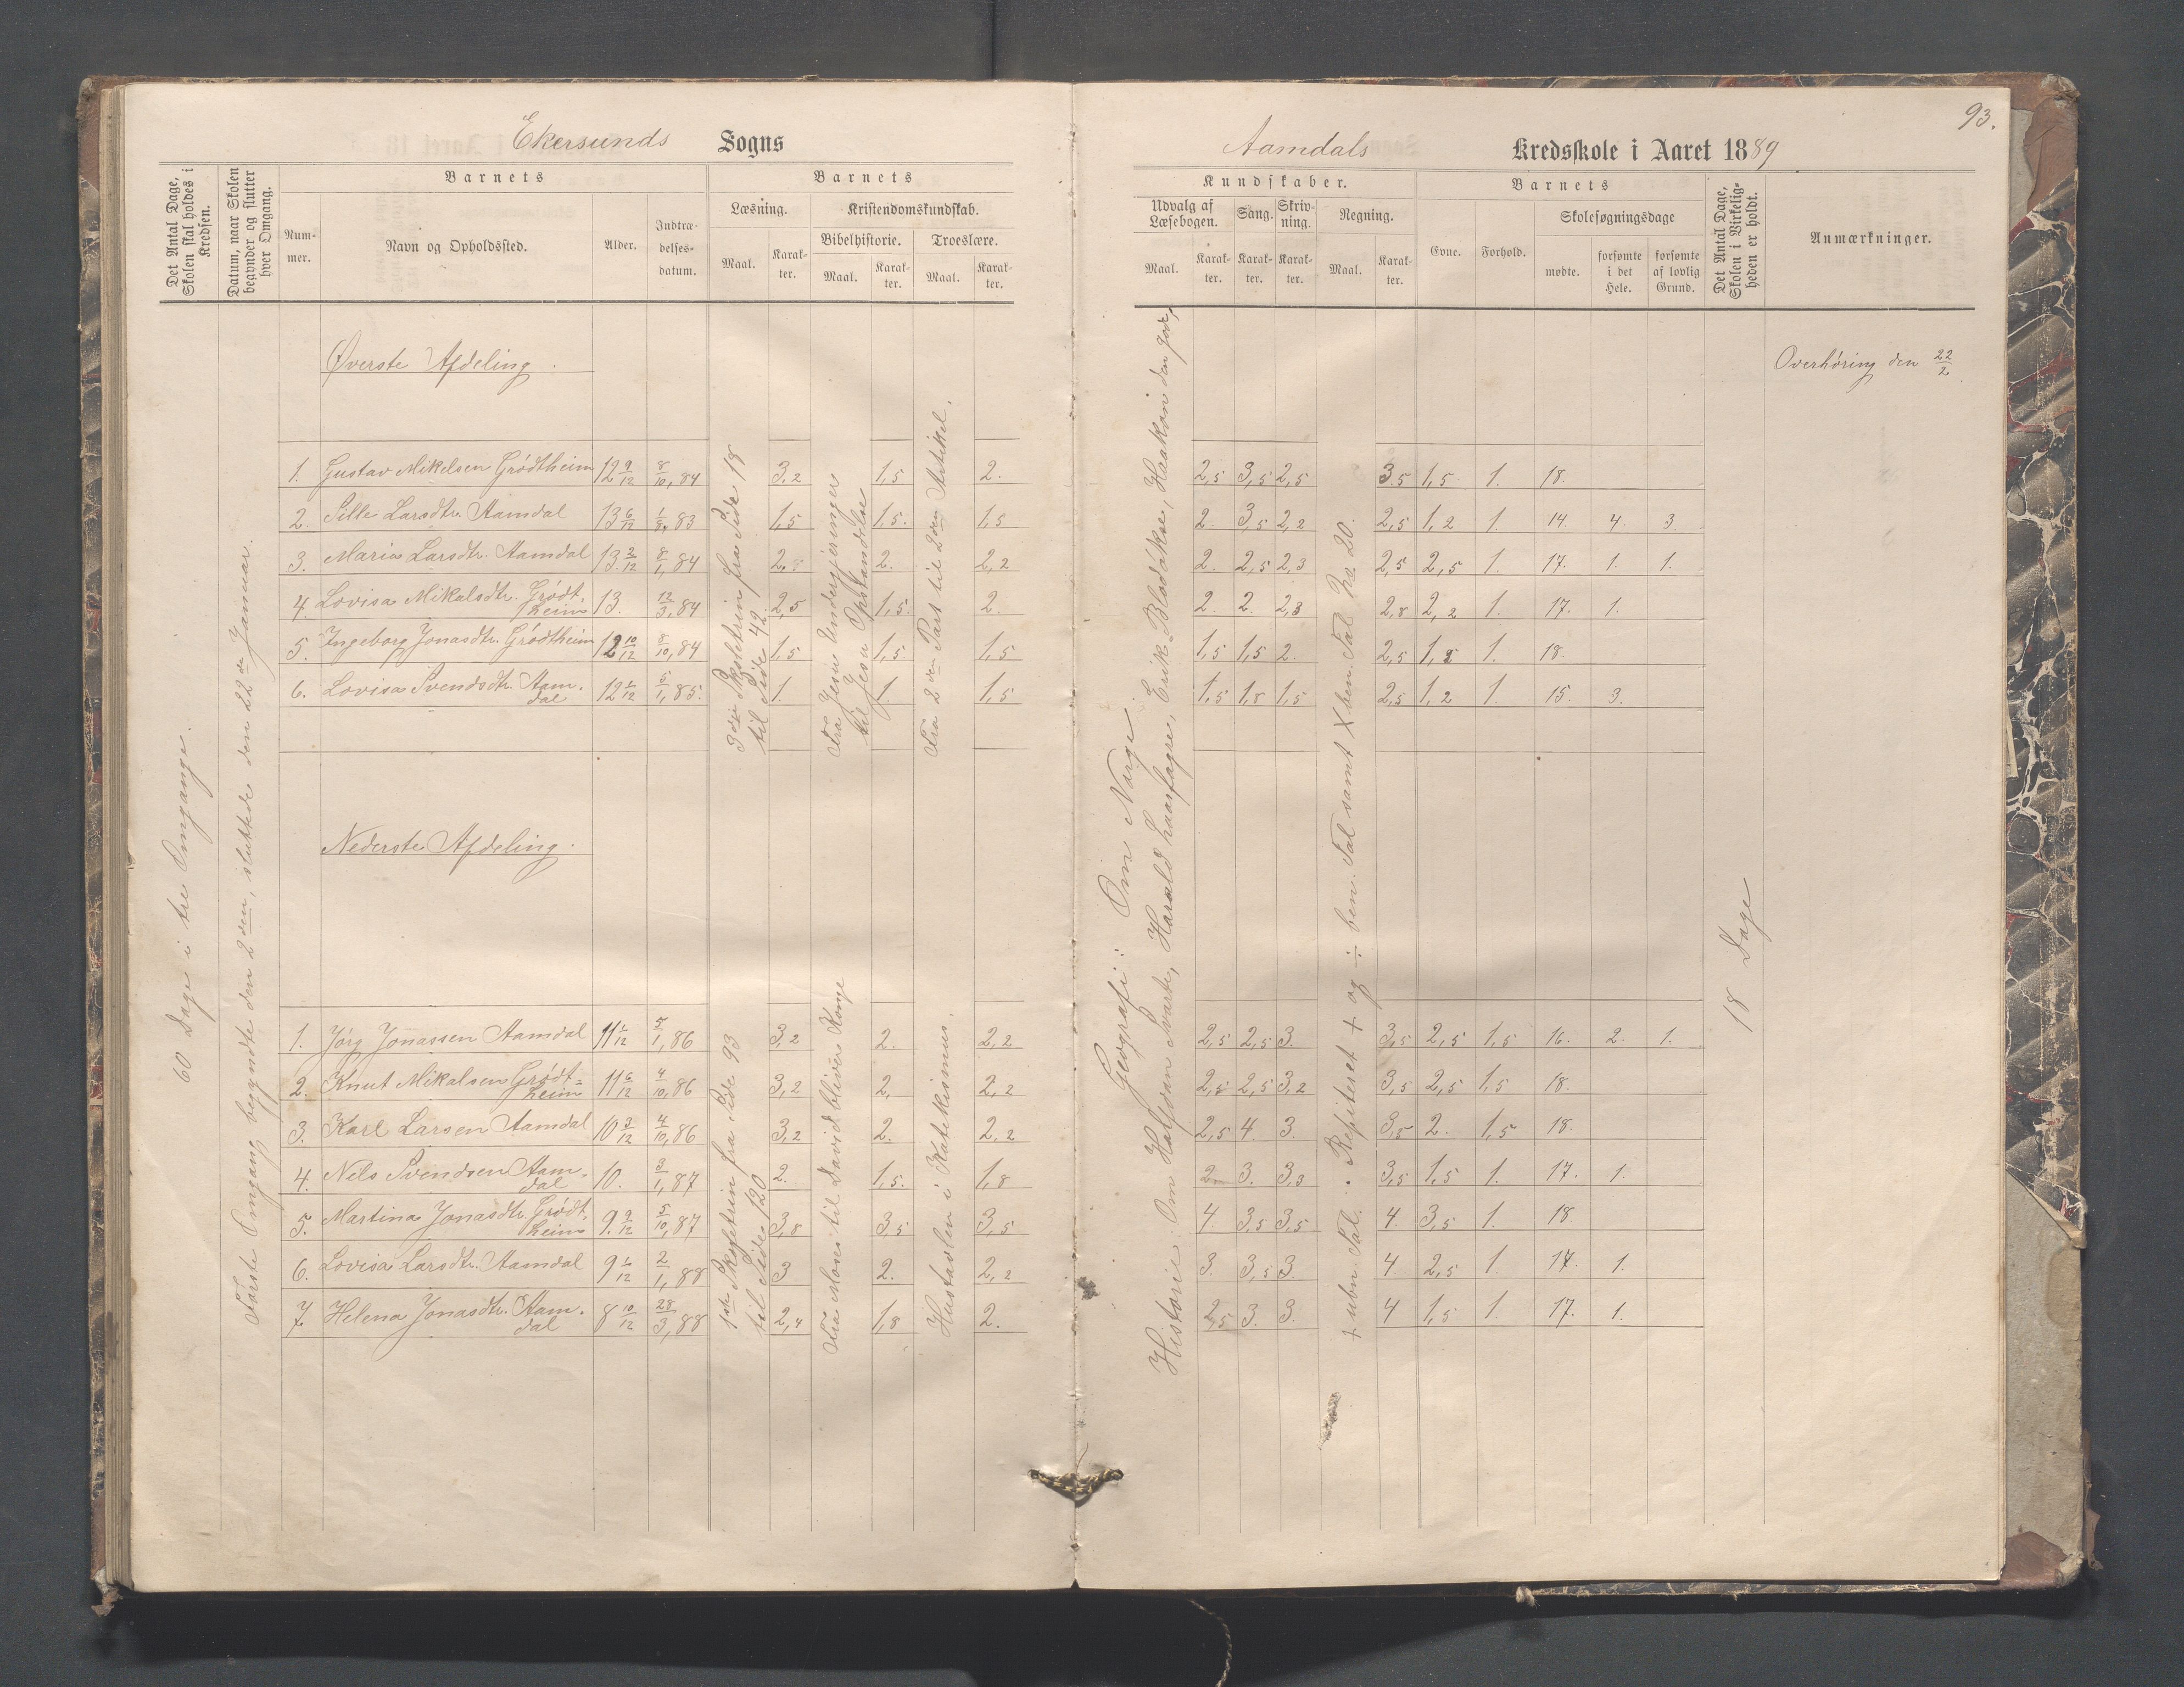 Ekersunds Sogns
Det Antal Dage, Skolen skal holdes i Kredsen.
Datum, naar Skolen begynder og slutter hver Omgang.
Barnets
Num-mer.
Navn og Opholdssted.
Alder.
Indtræ-delses-datum.
Barnets
Læsning.
Maal.
Karak-ter.
Kristendomskundskab.
Bibelhistorie.
Maal.
Karak-ter.
Troeslære.
Maal.
Karak-ter.
60 Dage i tre Omgange.
Første Omgang begyndte den 2den, sluttede den 22de Januar.
Øverste Afdeling.
1. Gustav Mikelsen Grødtheim 12 9/12 8/10, 84 3,2 1,5 2.
2. Sille Larsdtr. Aamdal 13 6/12 83 1,5 1,5. 1,5
3. Maria Larsdtr. Aamdal 13 2/12 8/1, 84 2,8 2. 2,2
4. Lovisa Mikalsdtr. Grødt-heim 13. 12/3, 84 2,5 1,5. 2.
5. Ingeborg Jonasdtr. Grødtheim 12 10/12 8/10, 84 1,5 1,5 1,5
6. Lovisa Svendsdtr. Aam-dal 12 1/12 5/1, 85. 1. 1. 1,5
3die Skoletrin fra Side 18
til Side 42.
Fra Jesu Undergjerninger
til Jesu Opstandelse
Fra 2den Part til 2den Artikel.
Nederste Afdeling.
1. Jørg Jonassen Aamdal 11 1/12 5/1, 86 3,2 2. 2,2
2. Knut Mikalsen Grødt-heim 11 6/12 4/10, 86 3,2 2. 2,2
3. Karl Larsen Aamdal 10 3/12 4/10, 86 3,2 2. 2,2
4. Nels Svendsen Aam-dal 10. 3/1, 87 2. 1,5. 1,8
5. Martina Jonasdtr. Grødt-heim 9. 9/12 5/10, 87 3,8 3,5 3,5
6. Lovisa Larsdtr. Aamdal 9 1/12 2/1, 88 3 2. 2,2
7. Helena Jonasdtr. Aam-dal 8 10/12 28/3, 88 2,4 1,8 2.
1ste Skoletrin fra Side 93
til Side 120
Fra Moses til David bliver Konge
Hustavlen i Katekismus.
93.
Aamdals Kredsskole i Aaret 1889
Kundskaber.
Udvalg af Læsebogen.
Maal.
Karak-ter.
Sang.
Karak-ter.
Skriv-ning.
Karak-ter.
Regning.
Maal.
Karak-ter.
Barnets
Evne.
Forhold.
Skolesøgningsdage
mødte.
forsømte i det Hele.
forsømte af lovlig Grund.
Det Antal Dage, Skolen i Virkelig-heden er holdt.
Anmærkninger.
Overhøring den 22/2.
2,5 3,5 2,5 3,5 1,5 1. 18.
2. 3,5 2,2 2,5 1,2 1. 14. 4. 3.
2. 2,5 2,3 2,5 2,5 1. 17. 1. 1.
2. 2. 2,3 2,8 2,2 1. 17. 1.
1,5 1,5 2. 2,5 1,2 1. 18.
1,5 1,8 1,5 2,5 1,2 1. 15. 3.
Geografi: Om Norge.
Historie: Om Halfdan Svarte, Harald haarfagre, Erik Blodøkse, Haakon den gode,
Repiteret + og ÷ ben. Tal samt X ben. Tal No 20.
+ ubn. Tal.
18 Dage
2,5 2,5 3. 3,5 2,5 1,5 16. 2. 1.
2,5 2,5 3,2 3,5 2,5 1,5 18.
2,5 4. 3. 3,5 2. 1,5 18.
2. 3. 3,3 3,5 1,5 1. 17. 1.
4. 3,5 3,5 4. 3,5 1. 18.
3. 3,5 3. 4. 2,5 1. 17. 1.
2,5 3. 3. 4 1,5 1. 17. 1.